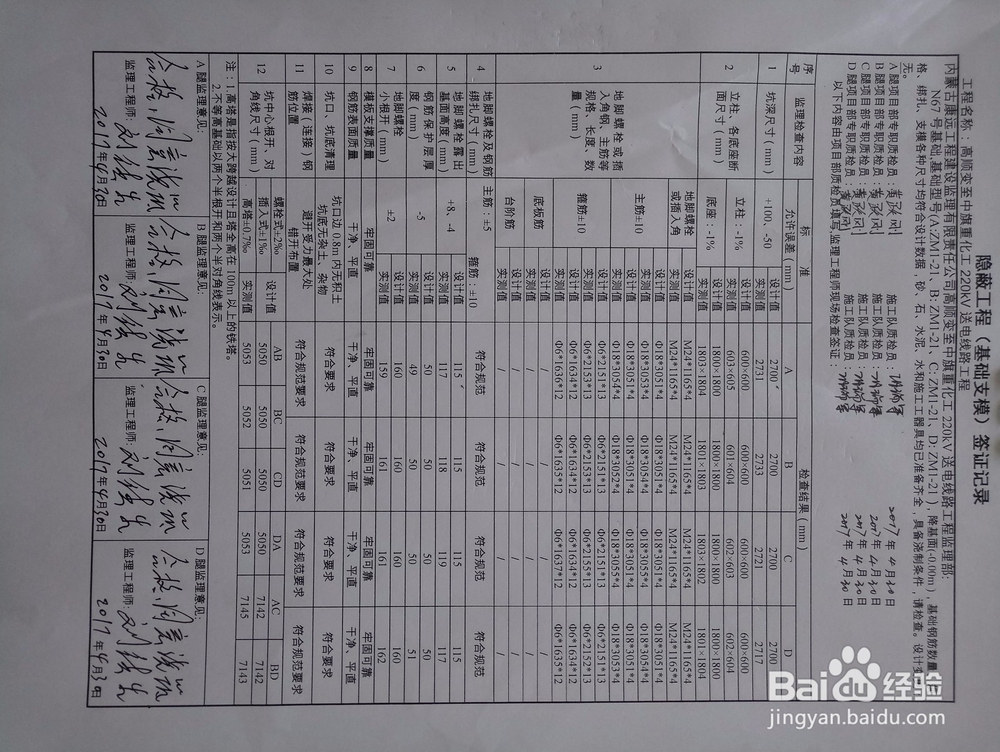 隐蔽工程（基础支模）签证记录
工程名称：高顺变至中旗重化工220kV送电线路工程
内蒙古康远工程建设监理有限责任公司高顺变至中旗重化工220kV送电线路工程监理部:
N67号基础,基础型号(A:ZM1-21、B: ZM1-21、C: ZM1-21、D: ZM1-21), 降基面(-0.00m), 基础钢筋数量、规
格，绑扎，支模各种尺寸均符合设计数据，砂、石、水泥、水和施工工器具均已准备齐全，具备浇制条件，请检查。设计变
无。
A腿项目部专职质检员: 施工队质检员: 2017年4月30日
B腿项目部专职质检员: 施工队质检员: 2017年4月30日
C腿项目部专职质检员: 施工队质检员: 2017年4月30日
D腿项目部专职质检员: 施工队质检员: 2017年4月30日
以下内容由项目部质检员填写,监理工程师现场检查签证:
序号 监理检查内容 标准 检查结果(mm)
允许误差(mm) A B C D
1 坑深尺寸(mm) +100、-50 设计值 2700 2700 2700 2700
实测值 2731 2733 2721 2717
2 立柱、各底座断面尺寸(mm) 立柱: -1% 设计值 600×600 600×600 600×600 600×600
实测值 603×605 601×604 602×603 602×604
底座: -1% 设计值 1800×1800 1800×1800 1800×1800 1800×1800
实测值 1803×1804 1801×1803 1803×1802 1801×1804
3 地脚螺栓或插入角钢、主筋等规格、长度、数量(mm) 地脚螺栓或插入角 设计值 M24*1165*4 M24*1165*4 M24*1165*4 M24*1165*4
实测值 M24*1165*4 M24*1165*4 M24*1165*4 M24*1165*4
主筋±10 设计值 Φ18*3051*4 Φ18*3051*4 Φ18*3051*4 Φ18*3051*4
实测值 Φ18*3053*4 Φ18*3054*4 Φ18*3055*4 Φ18*3054*4
设计值 Φ18*3051*4 Φ18*3051*4 Φ18*3051*4 Φ18*3051*4
实测值 Φ18*3054*4 Φ18*3052*4 Φ18*3055*4 Φ18*3053*4
箍筋±10 设计值 Φ6*2151*13 Φ6*2151*13 Φ6*2151*13 Φ6*2151*13
实测值 Φ6*2153*13 Φ6*2153*13 Φ6*2155*13 Φ6*2152*13
设计值 Φ6*1634*12 Φ6*1634*12 Φ6*1634*12 Φ6*1634*12
实测值 Φ6*1636*12 Φ6*1635*12 Φ6*1637*12 Φ6*1635*12
底板筋 设计值 / / / /
实测值 / / / /
台阶筋 设计值 / / / /
实测值 / / / /
4 地脚螺栓及钢筋绑扎尺寸(mm) 主筋: ±5 箍筋: ±10 符合规范 符合规范 符合规范 符合规范
5 地脚螺栓露出基面高度(mm) +8、-4 设计值 115 115 115 115
实测值 117 118 119 117
6 钢筋保护层厚度(mm) -5 设计值 50 50 50 50
实测值 49 50 50 51
7 地脚螺栓小根开(mm) ±2 设计值 160 160 160 160
实测值 159 161 161 162
8 模板支撑质量 牢固可靠 牢固可靠 牢固可靠 牢固可靠 牢固可靠
9 钢筋表面质量 干净、平直 干净、平直 干净、平直 干净、平直 干净、平直
10 坑口、坑底清理 坑口边0.8m内无积土 坑底无杂土、杂物 符合要求 符合要求 符合要求 符合要求
11 焊接(连接)钢筋位置 避开受力最大处 错开布置 符合规范要求 符合规范要求 符合规范要求 符合规范要求
12 坑中心根开、对角线尺寸(mm) AB BC CD DA AC BD
螺栓式±2‰ 设计值 5050 5050 5050 5050 7142 7142
插入式±1‰ 高塔±0.7‰ 实测值 5053 5052 5051 5053 7145 7143
注：1.高塔是指按大跨越设计且塔全高在100m以上的铁塔。
2.不等高基础以两个半根开和两个半对角线表示。
A腿监理意见: B腿监理意见: C腿监理意见: D腿监理意见:
合格,同意浇筑 合格,同意浇筑 合格,同意浇筑 合格,同意浇筑
监理工程师: 监理工程师: 监理工程师: 监理工程师:
2017年4月30日 2017年4月30日 2017年4月30日 2017年4月30日
Baidu 经验
jingyan.baidu.com